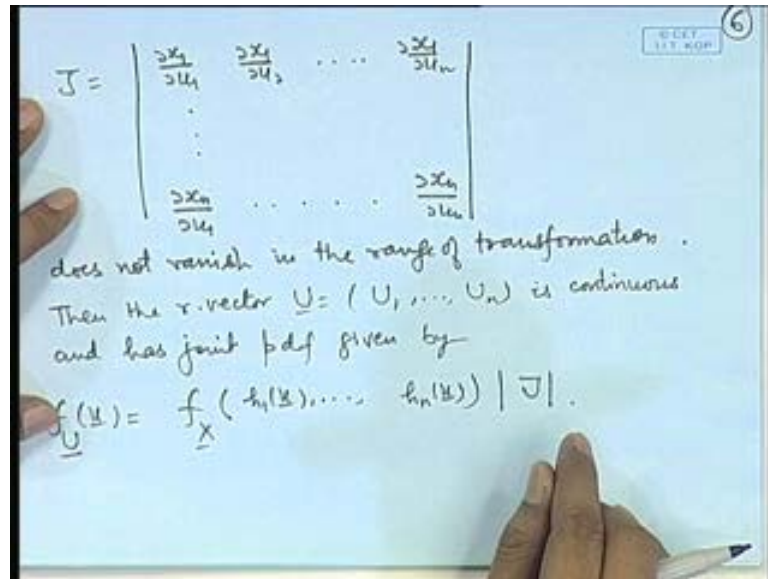 6
© CET
I.I.T. KGP
J = | ∂x₁/∂u₁ ∂x₁/∂u₂ .... ∂x₁/∂uₙ |
.
.
.
∂xₙ/∂u₁ . . . . . ∂xₙ/∂uₙ
does not vanish in the range of transformation.
Then the r.vector U = (U₁, ..., Uₙ) is continuous
and has joint pdf given by
f_U(u) = f_X(h₁(u), ...., hₙ(u)) |J|.